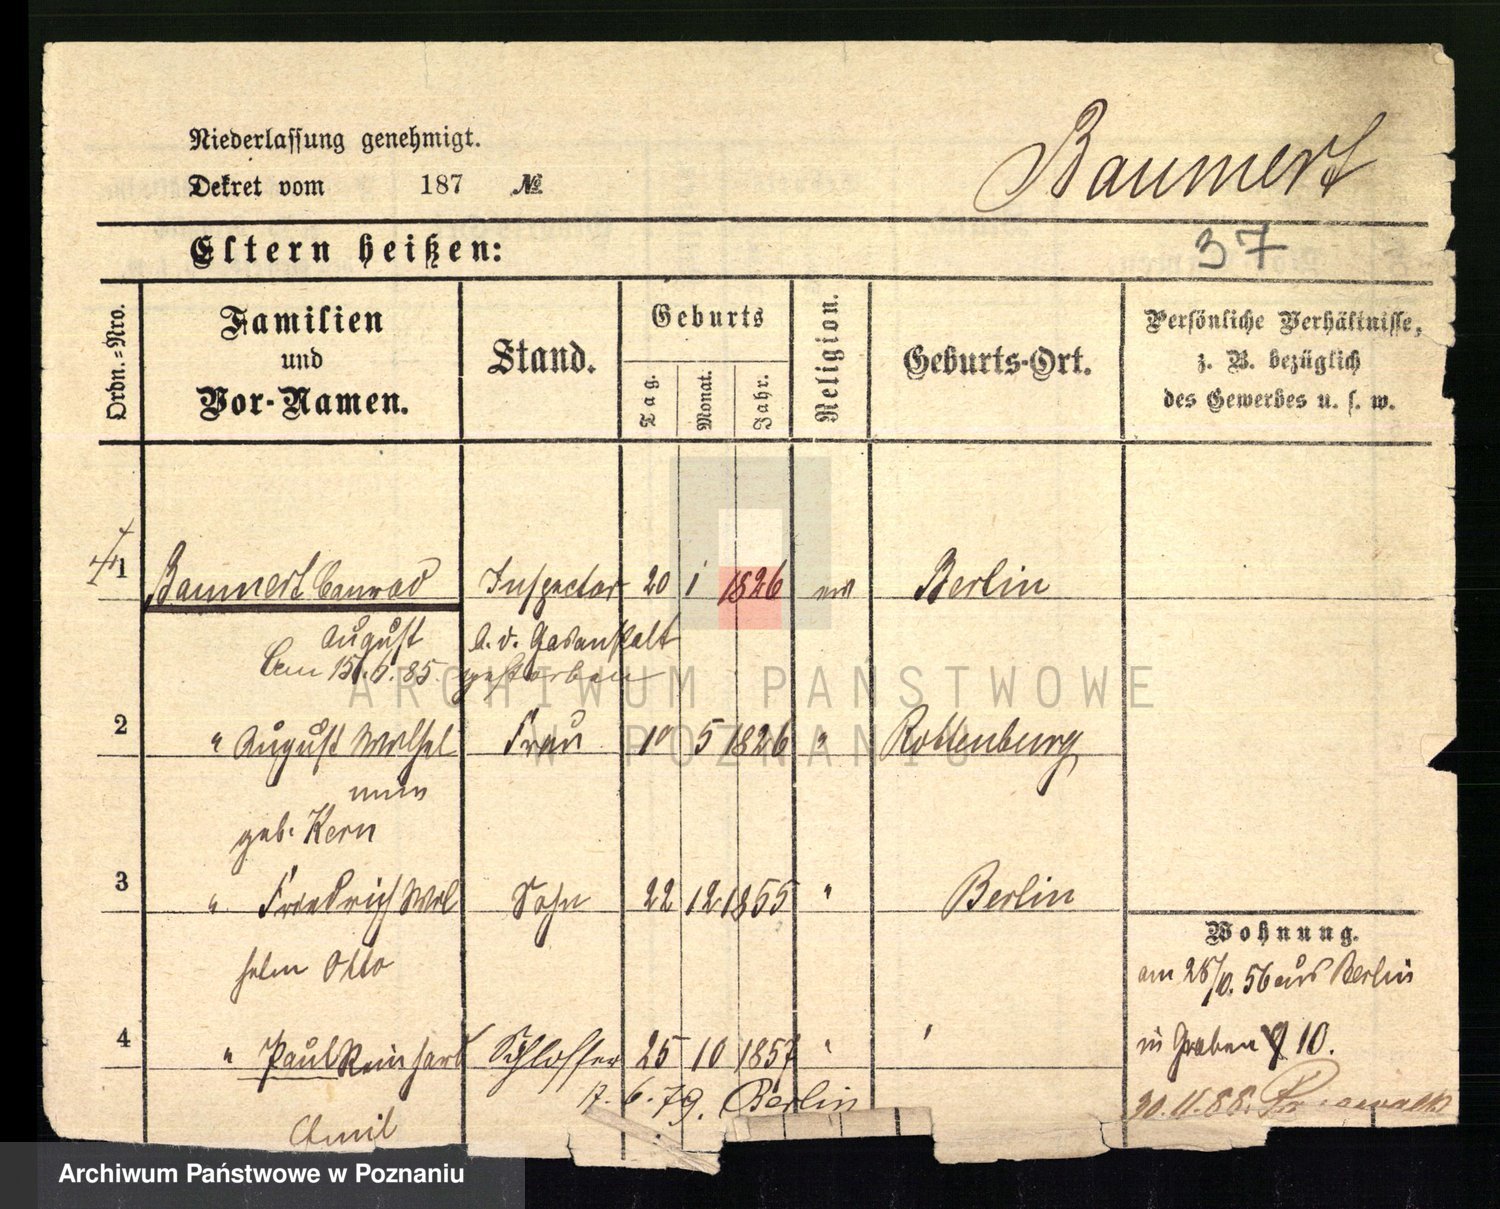 Niederlassung genehmigt.
Dekret vom 187 №
Baumert
Eltern heißen:
37
Ordn.-Nro.
Familien
und
Vor-Namen.
Stand.
Geburts
Tag.
Monat.
Jahr.
Religion.
Geburts-Ort.
Persönliche Verhältnisse,
z. B. bezüglich
des Gewerbes u. s. w.
1 Baumert Conrad Inspector 20 1 1826 Berlin
August b. d. Gasanstalt
15. 85. gestorben
ARCHIWUM PAŃSTWOWE
W POZNANIU
2 " August Wilhel Frau 5 1826 " Rottenburg
mine
geb. Kern
3 " Friedrich Wil Sohn 22 12 1855 " Berlin
helm Otto
Wohnung.
am 28/ 56 aus Berlin
4 " Paul Reinhard Schlosser 25 10 1857 "
in Graben 10.
17. 6. 79. Berlin
Emil
Archiwum Państwowe w Poznaniu